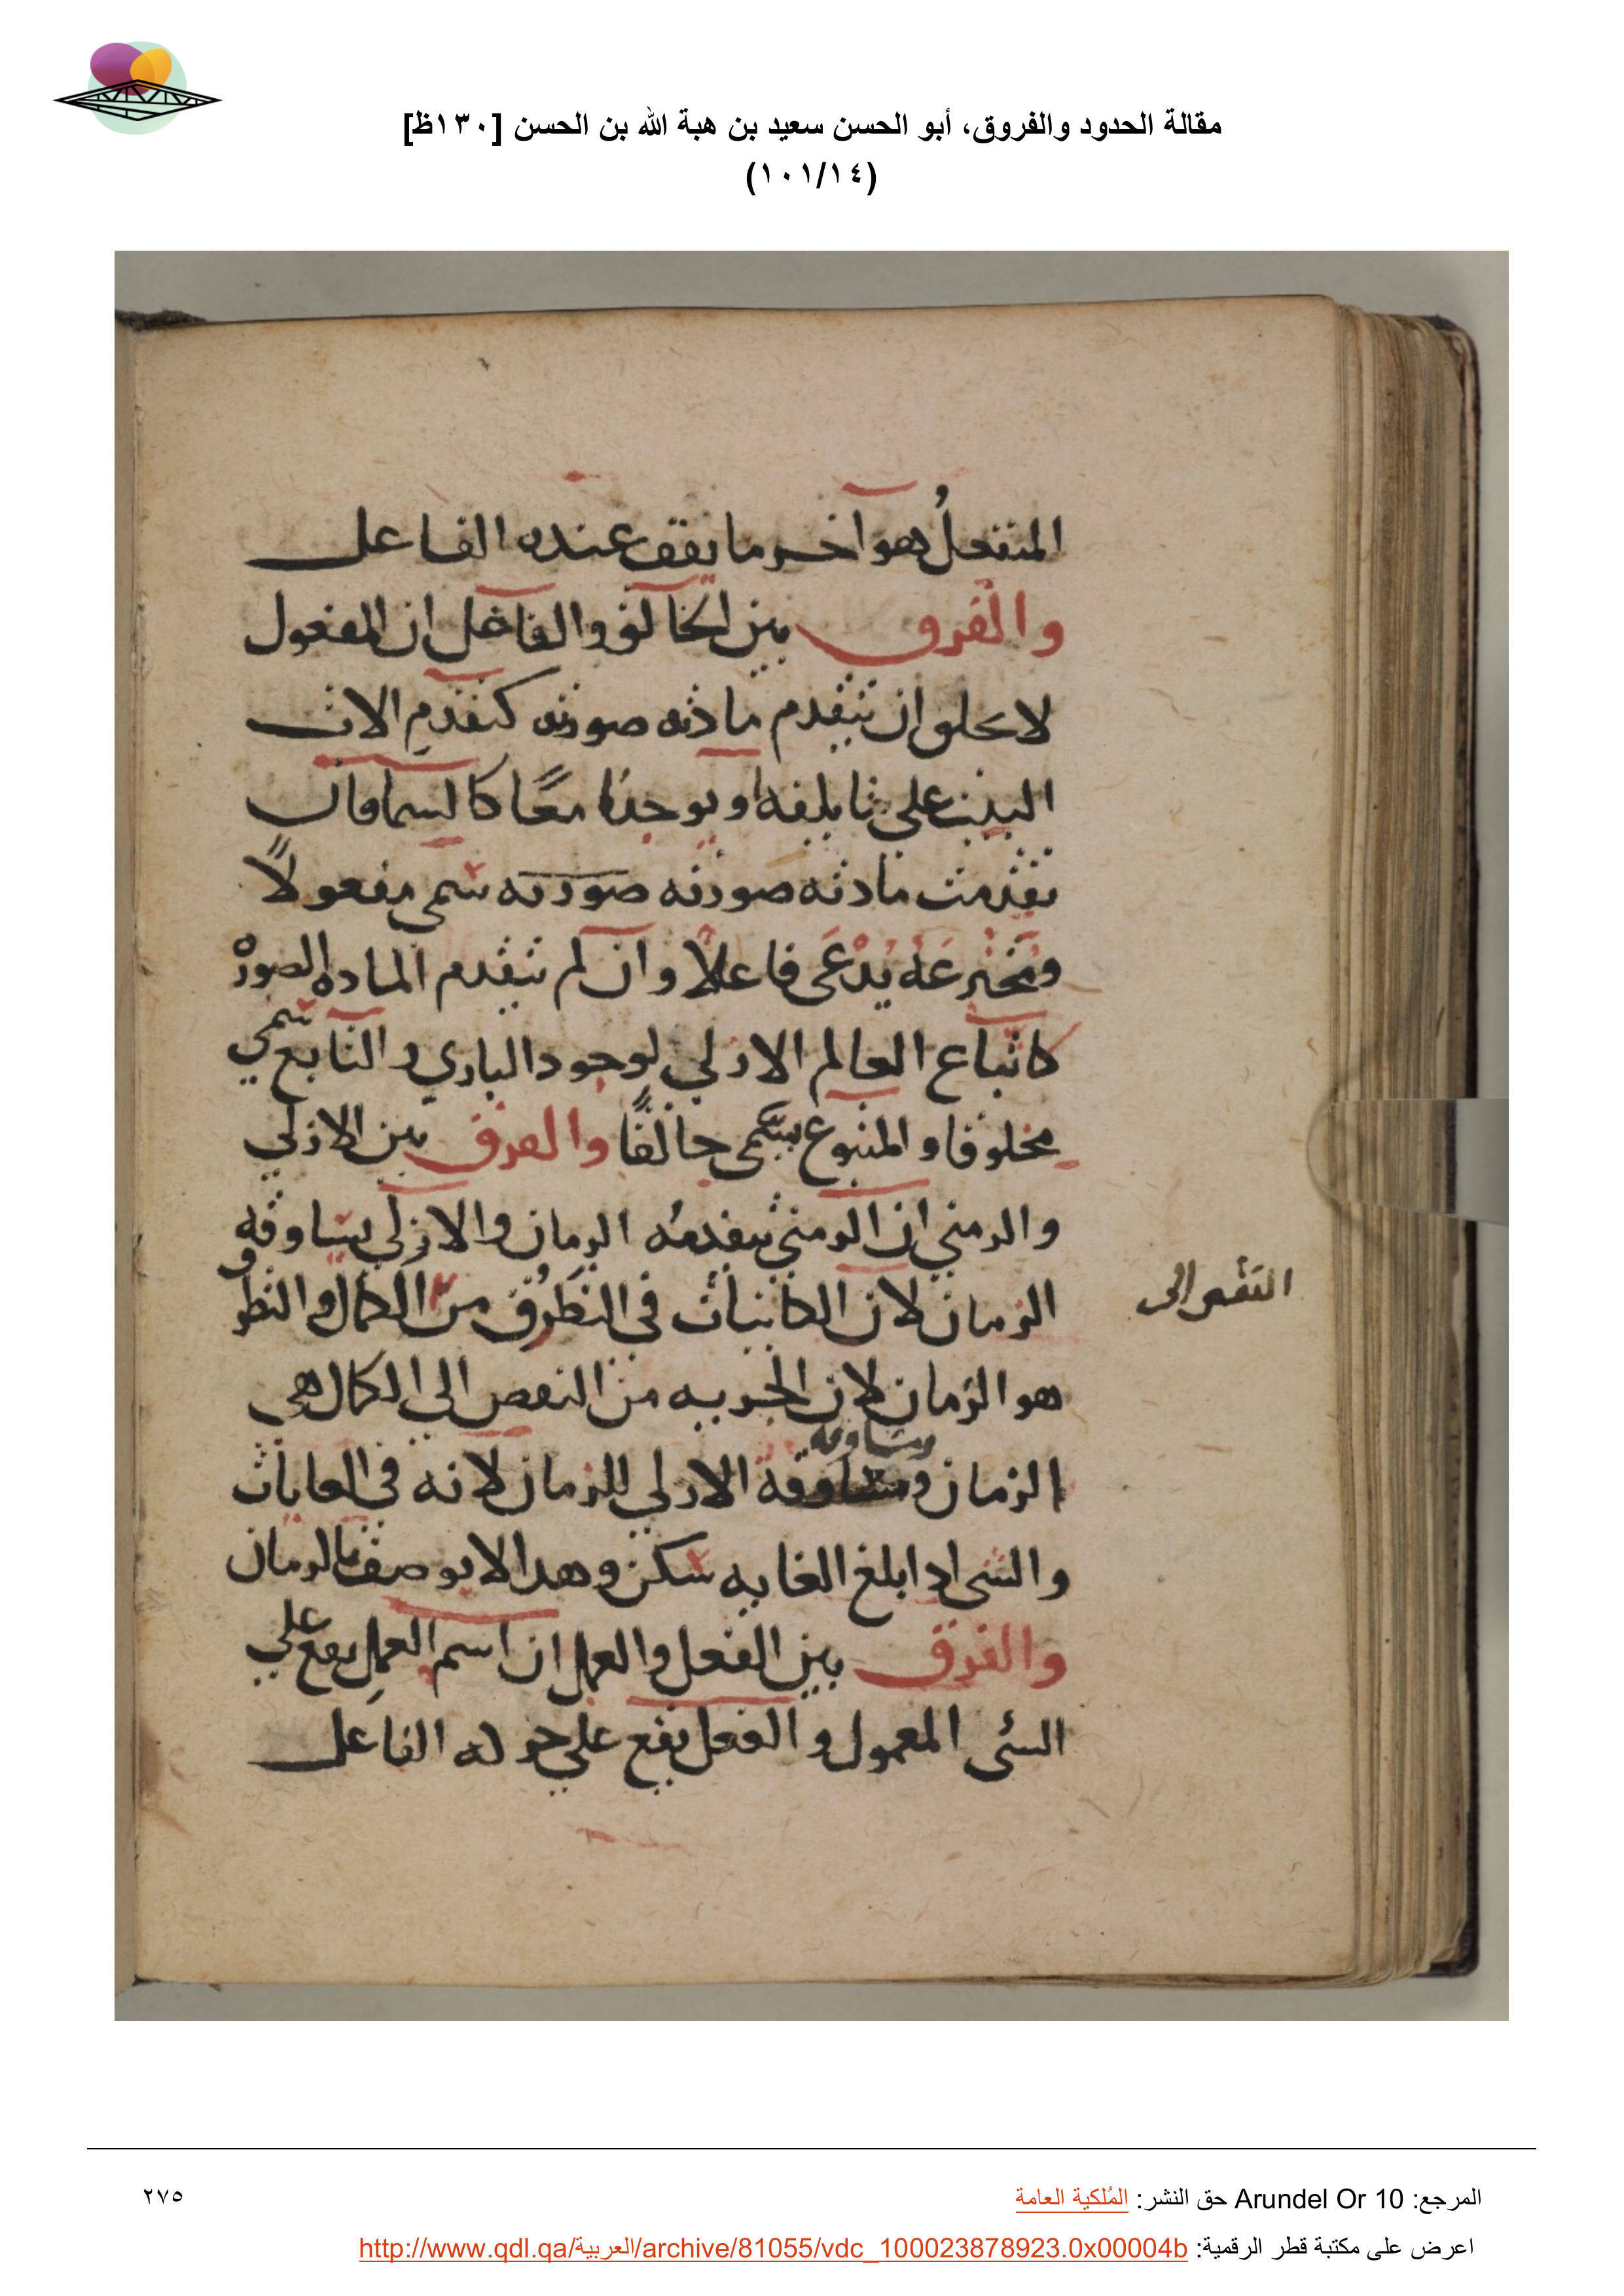 مقالة الحدود والفروق، أبو الحسن سعيد بن هبة الله بن الحسن [١٣٠ظ]
(١٠١/١٤)
المنفعلُ هو آخر ما يقف عنده الفاعل
والفرق بين الخالق والفاعل ان المفعول
لا يخلو ان تتقدم مادته صورته كتقدم
البيت على او يوجدا معًا كالسما فان
تقدمت مادته صورته صورته سمى مفعولاً
ومخترعه يدعى فاعلاً وان لم تتقدم الماده الصوره
كاتباع العالم الازلي لوجود الباري والتابع سمي
مخلوقا والمتبوع يسمى خالقًا والفرق بين الازلي
والزمني ان الزمني يتقدمه الزمان والازلي يساوقه
الزمان لان الكاينات في التطرق من الكمال والتطرق
النقص الى
هو الزمان لان من النقص الي الكمال هي
الزمان ومساوقة الازلي للزمان لانه في الغايات
ومساوقه
والشي اذا بلغ الغايه سكن وهذا لا يوصف بالزمان
والفرق بين الفعل والعمل ان اسم العمل يقع علي
الشى المعمول والفعل يقع علي حركه الفاعل
المرجع: Arundel Or 10 حق النشر: المُلكية العامة
٢٧٥
اعرض على مكتبة قطر الرقمية: http://www.qdl.qa/العربية/archive/81055/vdc_100023878923.0x00004b